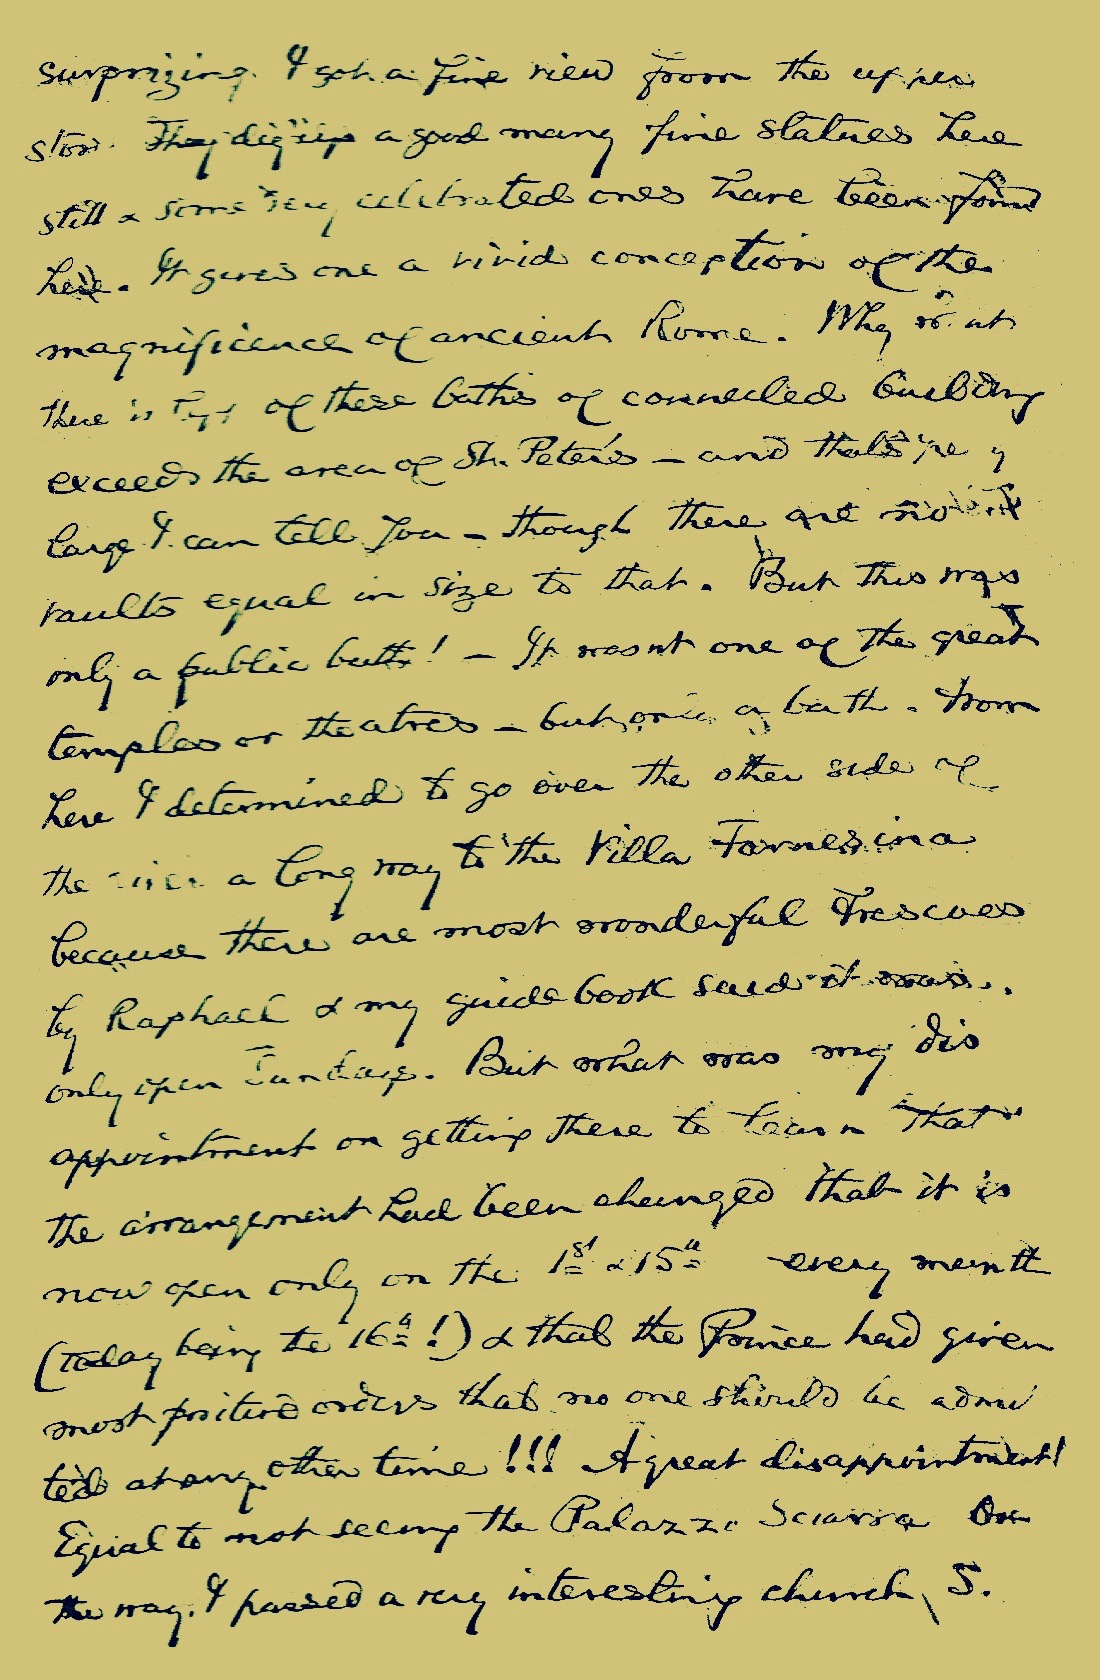 surprizing. I got a fine view from the upper
story. They dig up a good many fine statues here
still & some very celebrated ones have been found
here. It gives one a vivid conception of the
magnificence of ancient Rome. Why
there is of these baths of connected building
exceeds the area of St. Peter's – and that's
large I can tell you – though there are no
vaults equal in size to that. But this was
only a public bath! – It wasnt one of the great
temples or theatres – but only a bath. From
here I determined to go over the other side of
the river a long way to the Villa Farnesina
because there are most wonderful Frescoes
by Raphael & my guide book said it was
only open Sundays. But what was my dis
appointment on getting there to learn that
the arrangement had been changed that it is
now open only on the 1st & 15th every month
(today being the 16th!) & that the Prince had given
most positive orders that no one should be admi
ted at any other time!!! A great disappointment!
Equal to not seeing the Palazzo Sciarra On
the way. I passed a very interesting church, S.